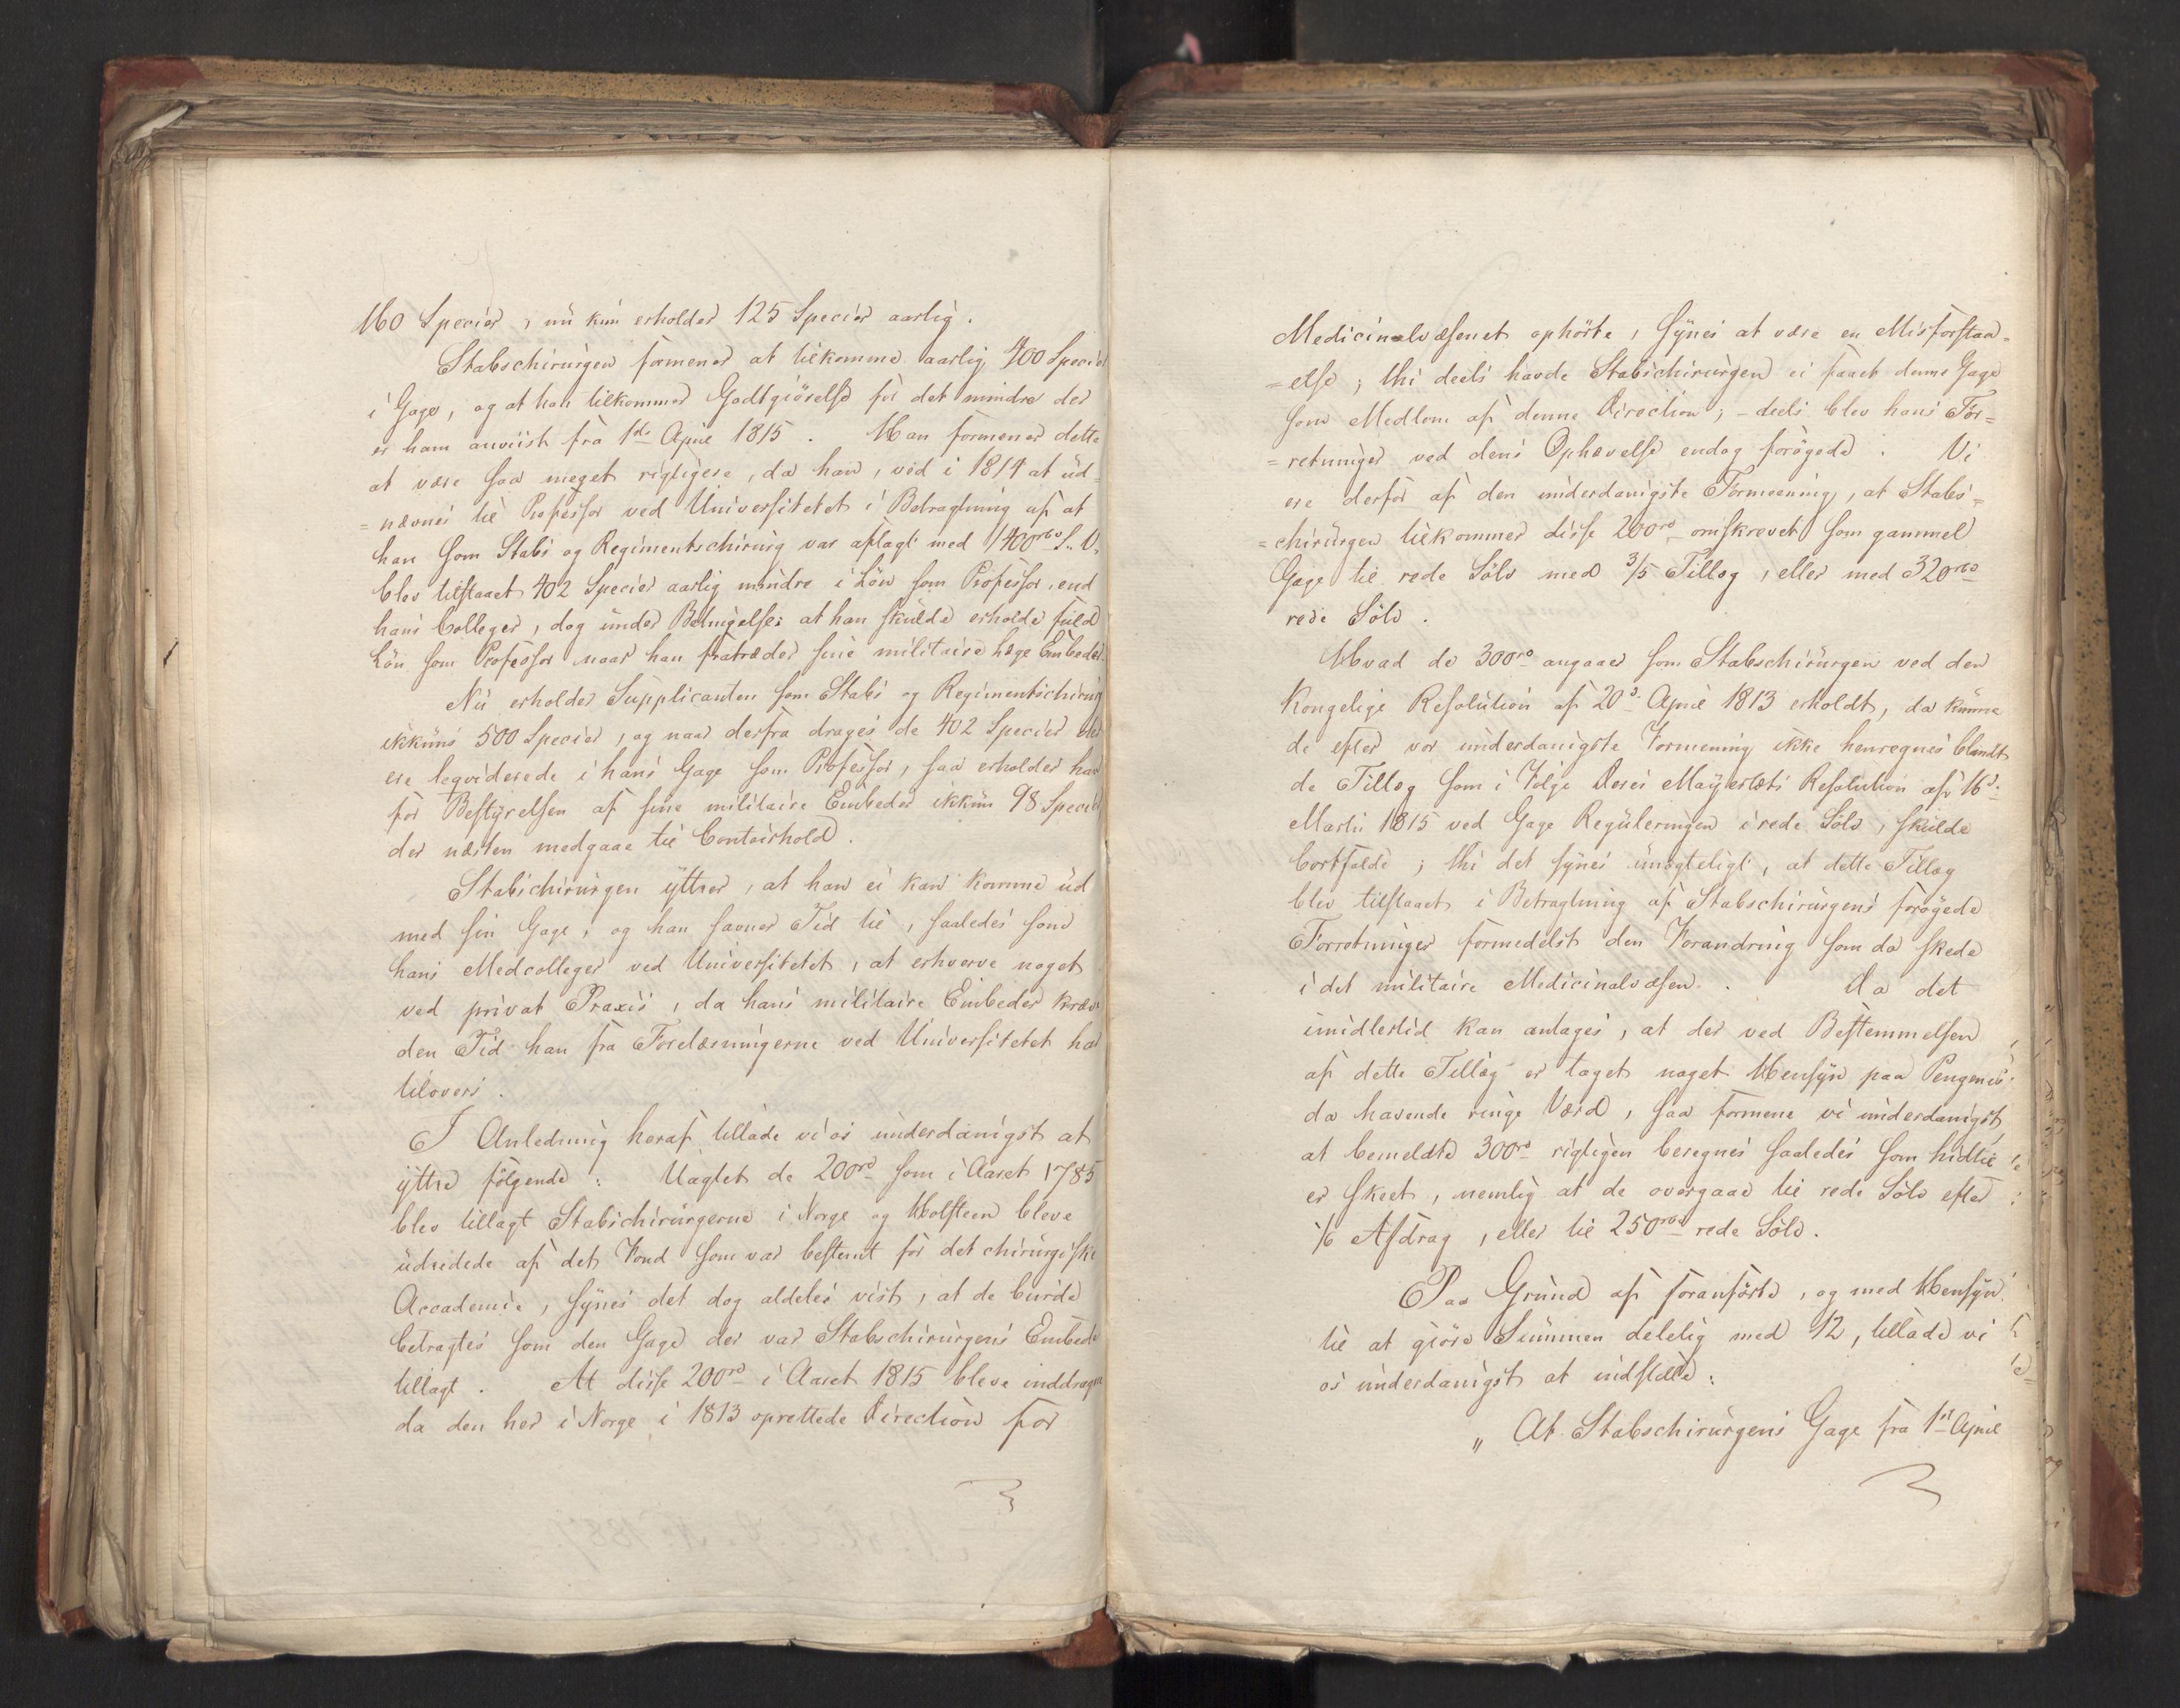 160 Species, nu kun erholder 125 Species aarlig.
Stabschirurgen formener at tilkomme aarlig 400 Species
i Gage, og at han tilkommer Godtgiörelse for det mindre der
er ham anviist fra 1ste April 1815. Man formener dette
at være saa meget rigtigere, da han, ved i 1814 at ud-
=nævnes til Professor ved Universitetet i Betragtning af at
han som Stabs og Regimentschirurg var aflagt med 1400 rbd S.V.
blev tilstaaet 402 Species aarlig mindre i Lön som Professor, end
hans Colleger, dog under Betingelse: at han skulde erholde fuld
Lön som Professor naar han fratræder sine militaire Læge Embeder.
Nu erholder Supplicanten som Stabs og Regimentschirurg
ikkuns 500 Species, og naar derfra drages de 402 Species der
ere liqviderede i hans Gage som Professor, saa erholder han
for Bestyrelsen af sine militaire Embeder ikkun 98 Species
der næsten medgaae til Contoirhold.
Stabschirurgen yttrer, at han ei kan komme ud
med sin Gage, og han savner Tid til, saaledes som
hans Medcolleger ved Universitetet, at erhverve noget
ved privat Praxis, da hans militaire Embeder kræve
den Tid han fra Forelæsningerne ved Universitetet har
tilovers.
I Anledning heraf tillade vi os underdanigst at
yttre følgende: Uagtet de 200 rd som i Aaret 1785
blev tillagt Stabschirurgerne i Norge og Holsteen bleve
udredede af det Fond som var bestemt for det chirurgiske
Accademie, synes det dog aldeles vist, at de burde
betragtes som den Gage der var Stabschirurgens Embede
tillagt. At disse 200 rd i Aaret 1815 bleve inddragne
da den her i Norge i 1813 oprettede Direction for
Medicinalvæsenet ophörte, synes at være en Misforstaa-
=else; thi deels havde Stabschirurgen ei faaet denne Gage
som Medlem af denne Direction; - deels blev hans For=
=retninger ved dens Ophævelse endog forögede. Vi
ere derfor af den underdanigste Formeening, at Stabs=
=chirurgen tilkommer disse 200 rd omskrevet som gammel
Gage til rede Sölv med 3/5 Tillæg, eller med 320 rbd
rede Sölv.
Hvad de 300 rd angaaer som Stabschirurgen ved den
Kongelige Resolution af 20d April 1813 erholdt, da kunne
de efter vor underdanigste Formening ikke henregnes blandt
de Tillæg som i Følge Deres Mayestæts Resolution af 16d
Martii 1815 ved Gage Reguleringen i rede Sölv, skulde
bortfalde; thi det synes unægteligt, at dette Tillæg
blev tilstaaet i Betragtning af Stabschirurgens forøgede
Forretninger formedelst den Forandring som da skede
i det militaire Medicinalvæsen. Da det
imidlertid kan antages, at der ved Bestemmelsen
af dette Tillæg er taget noget Hensyn paa Pengenes
da havende ringe Værd, saa formene vi underdanigst,
at bemeldte 300 rd rigtigen beregnes saaledes som hidtil
er skeet, nemlig at de overgaae til rede Sölv efter
1/6 Afdrag, eller til 250 rbd rede Sölv.
Paa Grund af foranførte, og med Hensyn
til at giöre Summen delelig med 12, tillade vi
os underdanigst at indstille:
„ At Stabschirurgens Gage fra 1st April